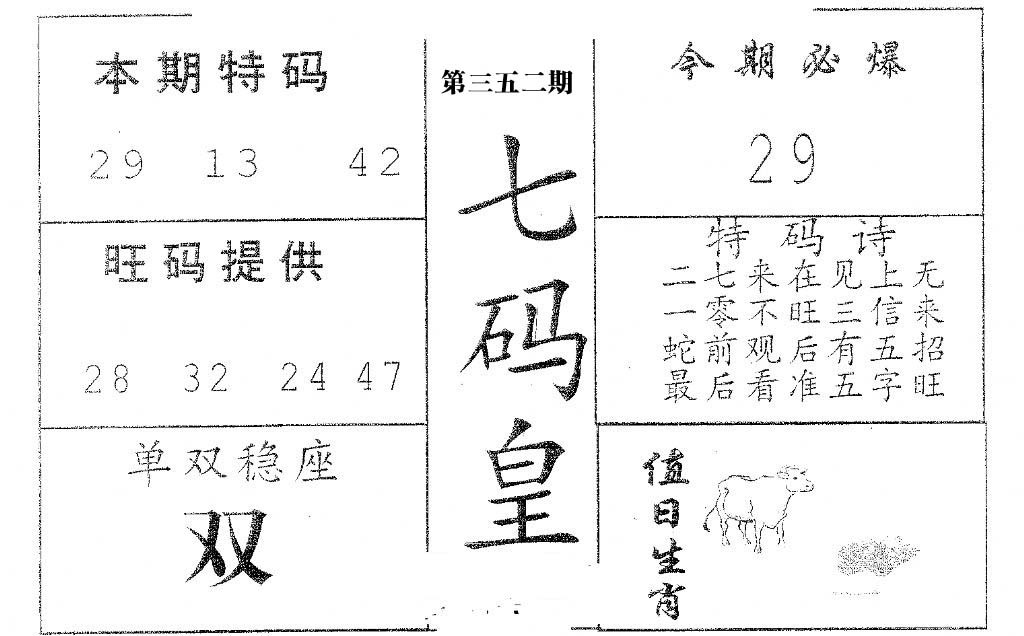 本期特码
29 13 42
旺码提供
28 32 24 47
单双稳座
双
第三五二期
七码皇
今期必爆
29
特码诗
二七来在见上无
一零不旺三信来
蛇前观后有五招
最后看准五字旺
值日生肖